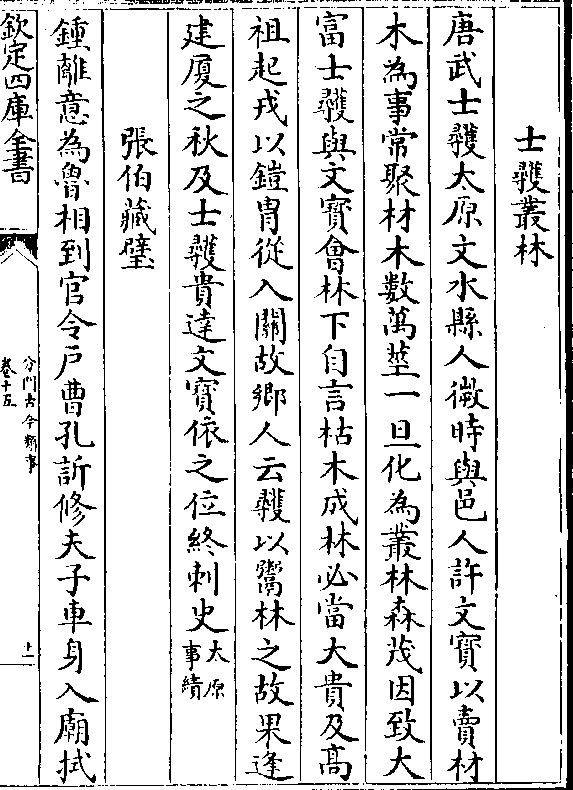 士彠叢林
唐武士彠太原文水縣人微時與邑人許文寳以賣材
木為事常聚材木數萬莖一旦化為叢林森茂因致大
富士彠與文寳會林下自言枯木成林必當大貴及髙
祖起戎以鎧胄從入關故鄉人云彠以鬻林之故果逢
建厦之秋及士彠貴達文寳依之位終刺史太原
事績
張伯藏璧
鍾離意為魯相到官令戶曹孔訢修夫子車身入廟拭
欽定四庫全書
分門古今類事
卷十五
十一